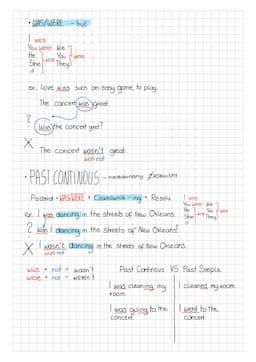 • WAS/WERE - być
I was
You were We
He You were
She was They
it
ex. Love was such an easy game to play.
The concert was great.
? Was the concert gret?
X The concert wasn't great.
was not
• PAST CONTINOUS - niedokonany
Podmiot + WAS/WERE + Czasownik - ing + Reszta
I was
You were We
He You were
She was They
it
ex. I was dancing in the streets of New Orleans.
? Was I dancing in the streets of New Orleans?
X I wasn't dancing in the streets of New Orleans.
was not
was + not = wasn't
were + not = weren't
Past Continous VS Past Simple
I was cleaning my room.
I cleaned my room.
I was going to the concert.
I went to the concert.